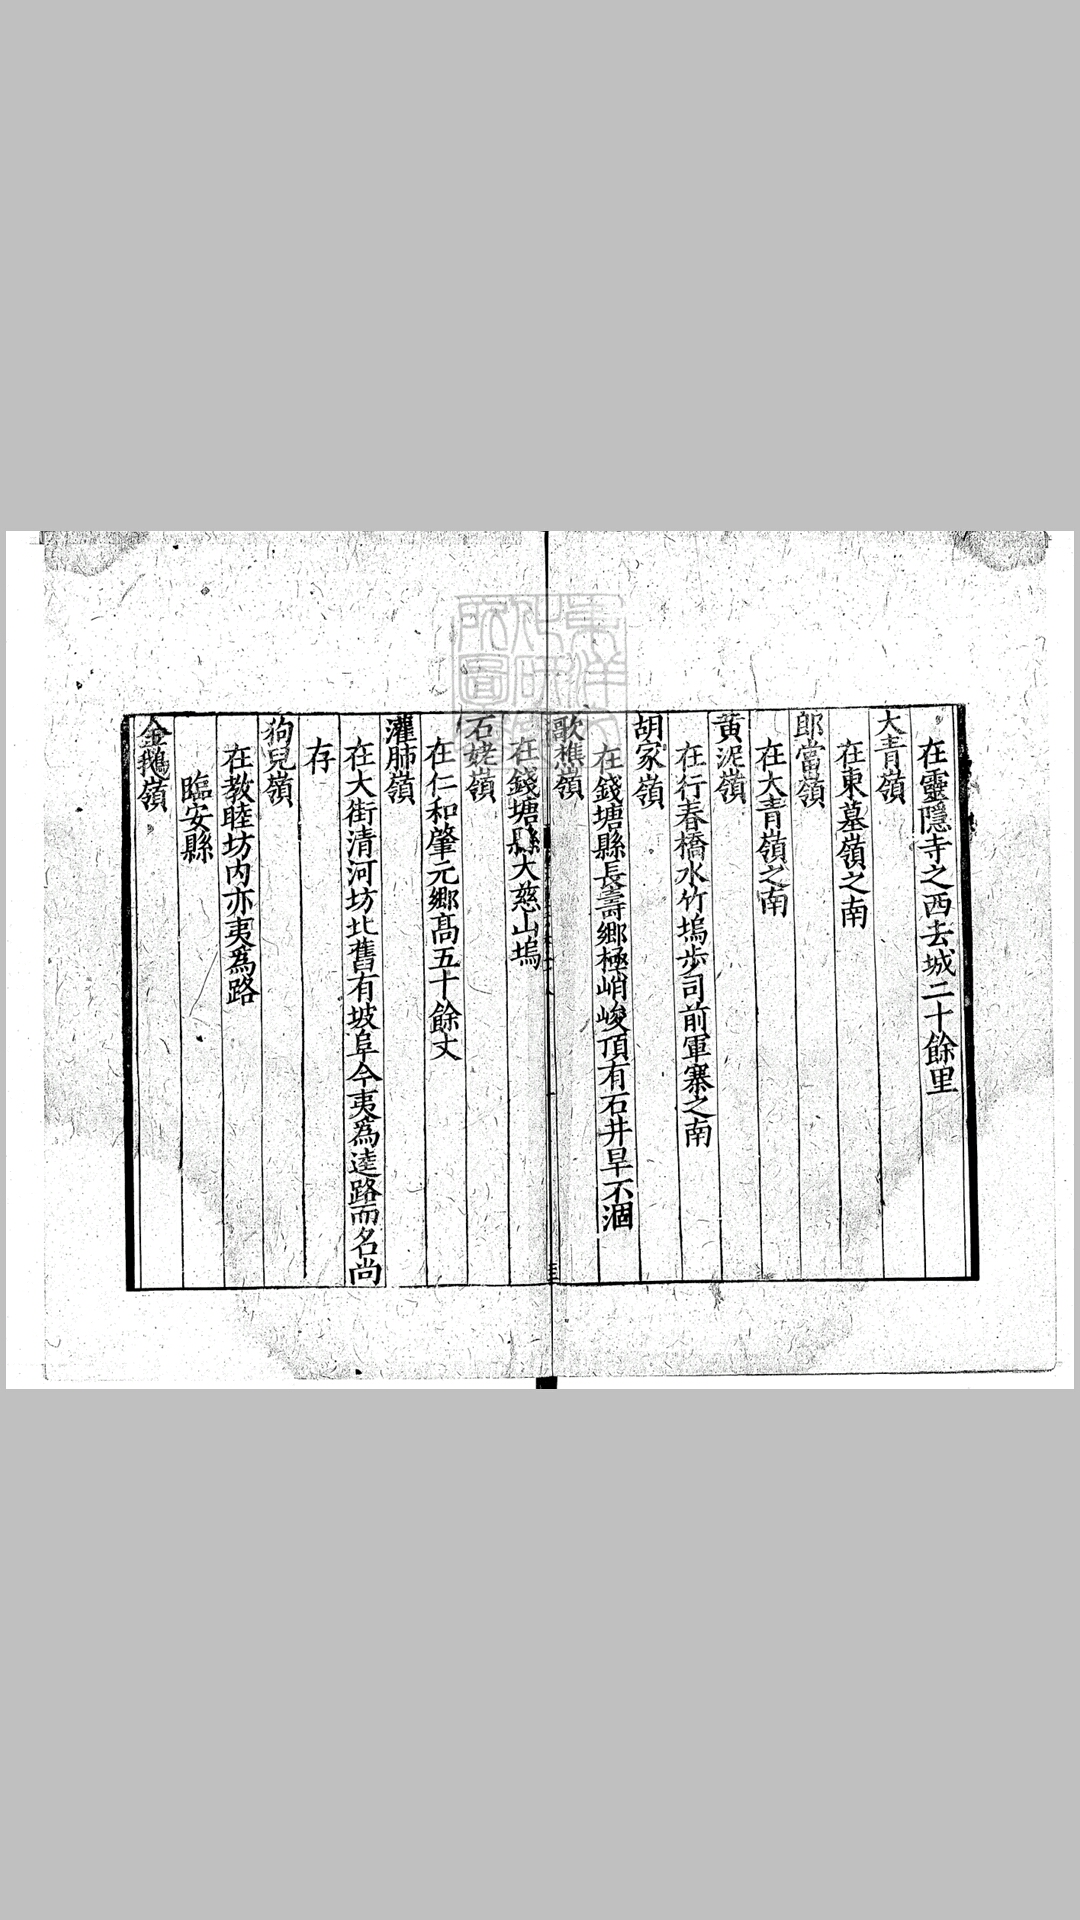 在靈隱寺之西去城二十餘里
大青嶺
在東墓嶺之南
郎當嶺
在大青嶺之南
黄泥嶺
在行春橋水竹塢步司前軍寨之南
胡家嶺
在錢塘縣長壽鄉極峭峻頂有石井旱不涸
歌樵嶺
在錢塘縣大慈山塢
石姥嶺
在仁和肇元鄉髙五十餘丈
灌肺嶺
在大街清河坊北舊有坡阜今夷爲逵路而名尚
存
狗兒嶺
在教睦坊内亦夷爲路
臨安縣
金鵝嶺